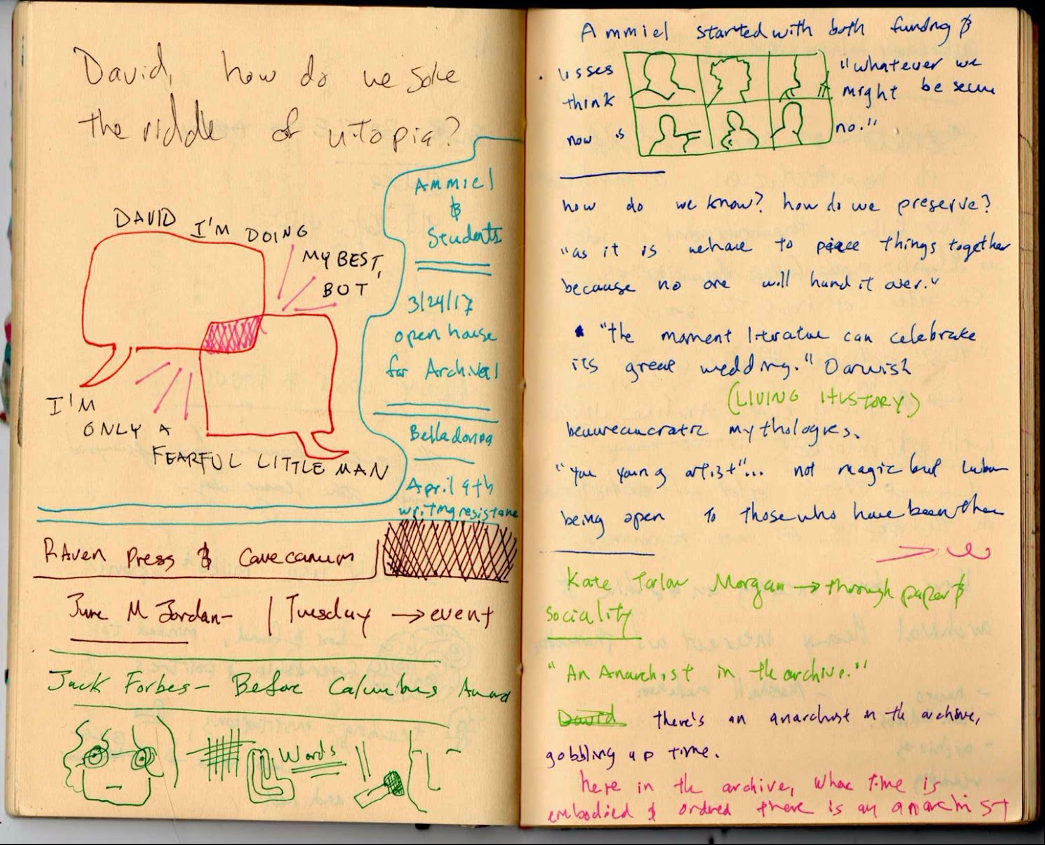 David, how do we solve
the riddle of utopia?
DAVID I'M DOING
MY BEST,
BUT
I'M
ONLY A
FEARFUL LITTLE MAN
Ammiel
&
Students
3/24/17
open house
for Archival
Belladonna
April 9th
writing resistance
Raven Press & Cavecanum
June M Jordan- | Tuesday → event
Jack Forbes- Before Columbus Award
Words
Ammiel started with both funding &
"whatever we
might be secure
no."
think
now
how do we know? how do we preserve?
"as it is we have to piece things together
because no one will hand it over."
"the moment literature can celebrate
its great wedding." Darwish
(LIVING HISTORY)
beaureaucratic mythologies.
"you young artist"... not magic but labor
being open to those who have been there
Kate Morgan → through paper &
Sociality
"An Anarchist in the archive."
David there's an anarchist in the archive,
gobbling up time.
here in the archive, what time is
embodied & ordered there is an anarchist